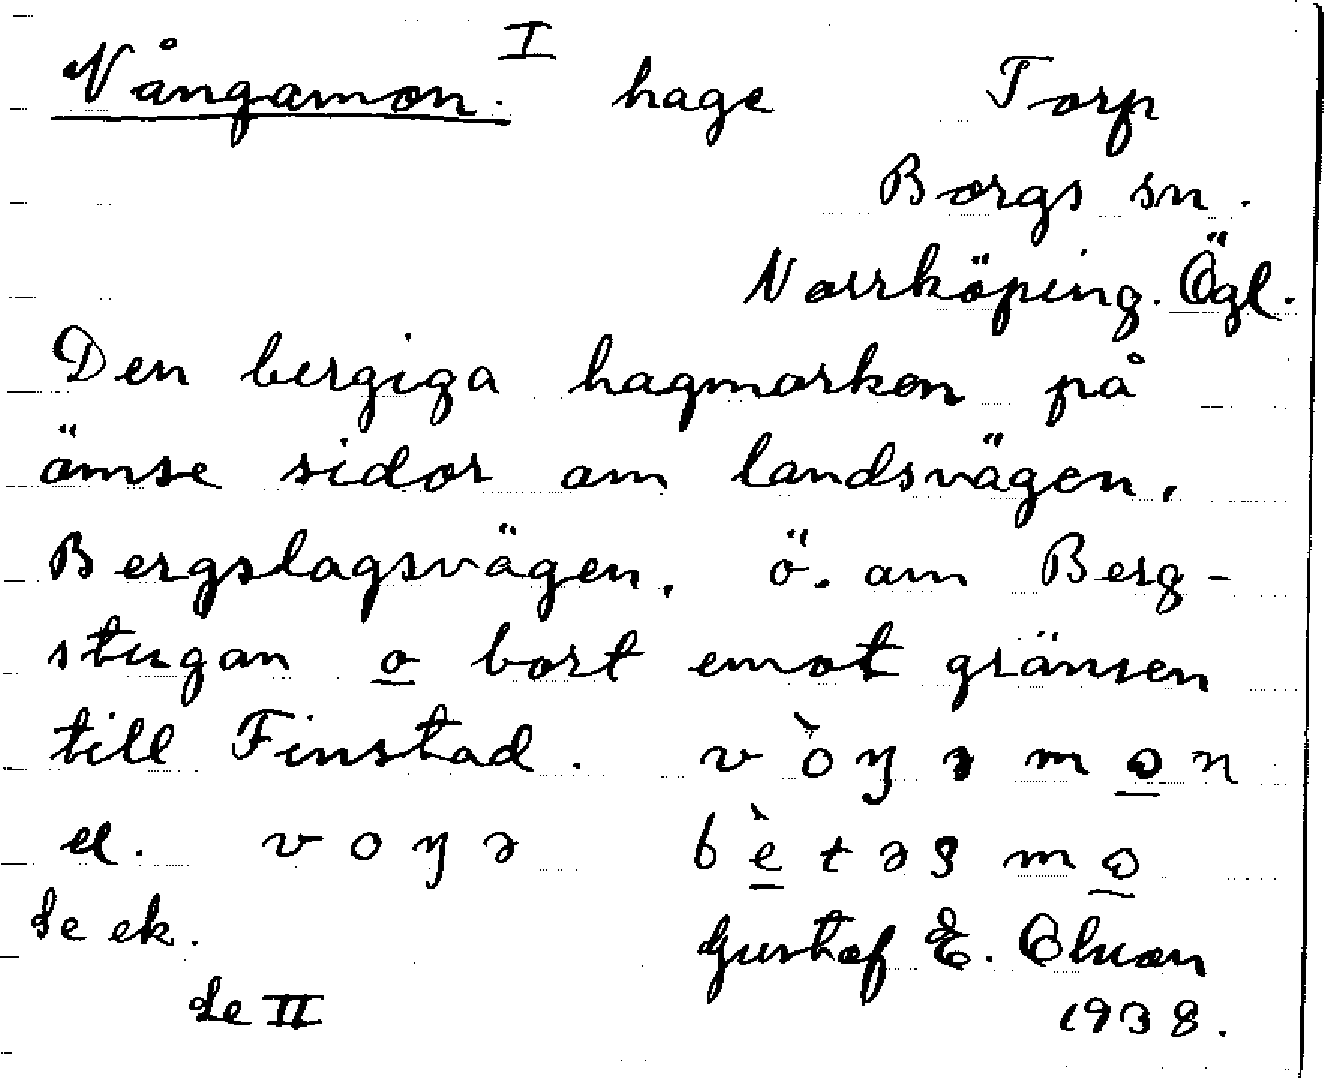 Vångamon. I hage Torp
Borgs sn.
Norrköping. Ögl.
Den bergiga hagmarken på
ömse sidor om landsvägen,
Bergslagsvägen, ö. om Berg-
stugan o bort emot gränsen
till Finstad. vòŋəmon
el. voŋə bètəsmo
Se ek. Gustaf E. Olson
Se II 1938.